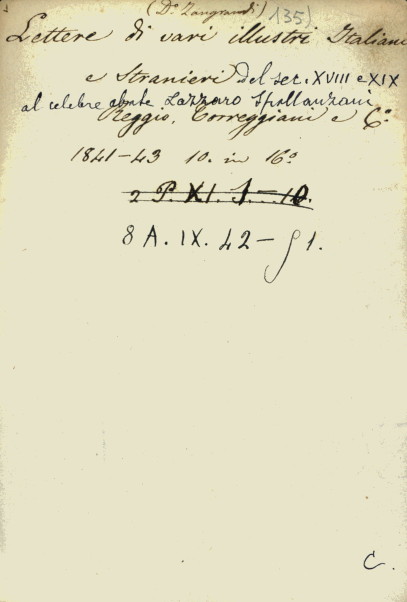 (Do. Zangrandi) 135).
Lettere di vari illustri Italiani
e Stranieri del sec. XVIII e XIX
al celebre abate Lazzaro Spallanzani
Reggio, Torreggiani e Co.
1841-43 10. in 16o
2 P. XI. 1-10.
8 A. IX. 42-51.
C.